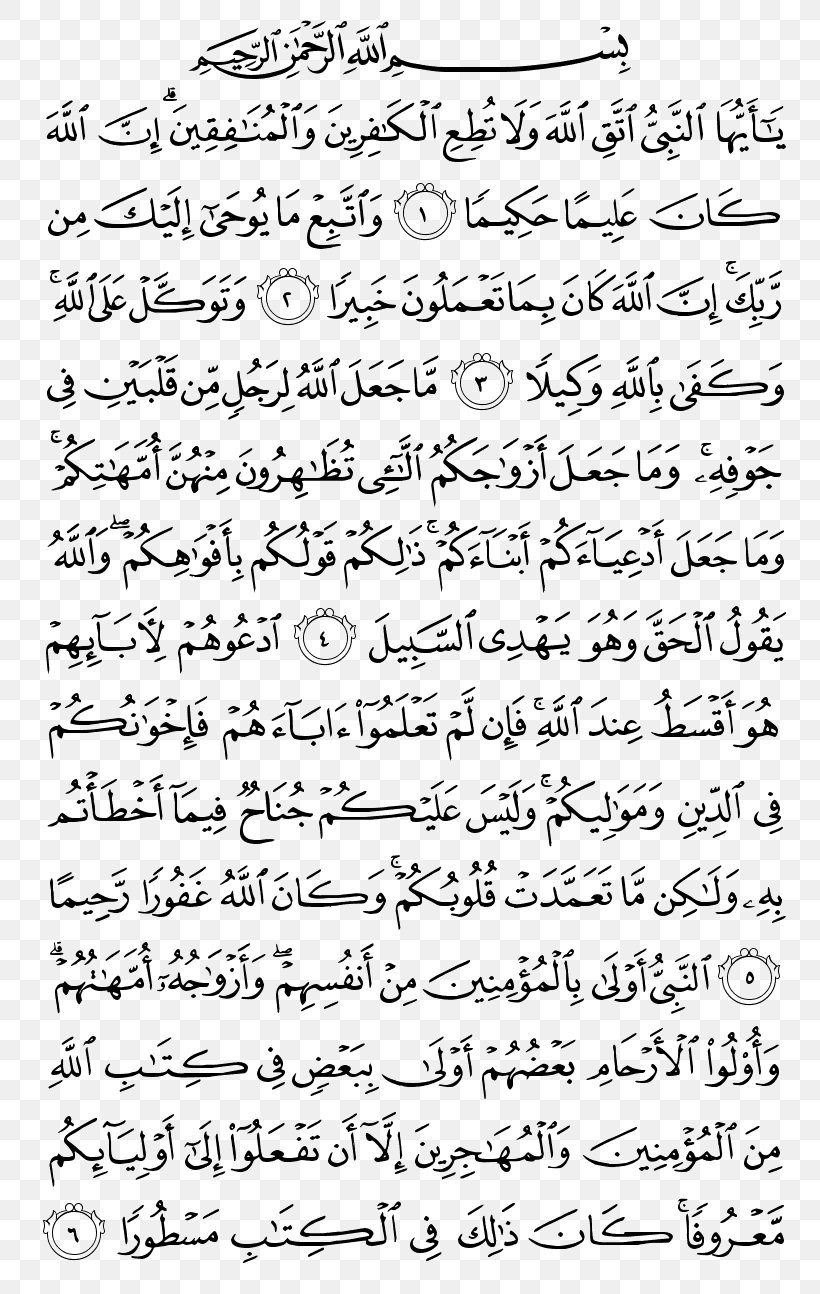 بِسْمِ ٱللَّهِ ٱلرَّحْمَٰنِ ٱلرَّحِيمِ
يَٰٓأَيُّهَا ٱلنَّبِىُّ ٱتَّقِ ٱللَّهَ وَلَا تُطِعِ ٱلْكَٰفِرِينَ وَٱلْمُنَٰفِقِينَ ۗ إِنَّ ٱللَّهَ
كَانَ عَلِيمًا حَكِيمًا ١ وَٱتَّبِعْ مَا يُوحَىٰٓ إِلَيْكَ مِن
رَّبِّكَ ۚ إِنَّ ٱللَّهَ كَانَ بِمَا تَعْمَلُونَ خَبِيرًا ٢ وَتَوَكَّلْ عَلَى ٱللَّهِ ۚ
وَكَفَىٰ بِٱللَّهِ وَكِيلًا ٣ مَّا جَعَلَ ٱللَّهُ لِرَجُلٍ مِّن قَلْبَيْنِ فِى
جَوْفِهِۦ ۚ وَمَا جَعَلَ أَزْوَٰجَكُمُ ٱلَّٰٓـِٔى تُظَٰهِرُونَ مِنْهُنَّ أُمَّهَٰتِكُمْ ۚ
وَمَا جَعَلَ أَدْعِيَآءَكُمْ أَبْنَآءَكُمْ ۚ ذَٰلِكُمْ قَوْلُكُم بِأَفْوَٰهِكُمْ ۖ وَٱللَّهُ
يَقُولُ ٱلْحَقَّ وَهُوَ يَهْدِى ٱلسَّبِيلَ ٤ ٱدْعُوهُمْ لِـَٔابَآئِهِمْ
هُوَ أَقْسَطُ عِندَ ٱللَّهِ ۚ فَإِن لَّمْ تَعْلَمُوٓا۟ ءَابَآءَهُمْ فَإِخْوَٰنُكُمْ
فِى ٱلدِّينِ وَمَوَٰلِيكُمْ ۚ وَلَيْسَ عَلَيْكُمْ جُنَاحٌ فِيمَآ أَخْطَأْتُم
بِهِۦ وَلَٰكِن مَّا تَعَمَّدَتْ قُلُوبُكُمْ ۚ وَكَانَ ٱللَّهُ غَفُورًا رَّحِيمًا
٥ ٱلنَّبِىُّ أَوْلَىٰ بِٱلْمُؤْمِنِينَ مِنْ أَنفُسِهِمْ ۖ وَأَزْوَٰجُهُۥٓ أُمَّهَٰتُهُمْ ۗ
وَأُو۟لُوا۟ ٱلْأَرْحَامِ بَعْضُهُمْ أَوْلَىٰ بِبَعْضٍ فِى كِتَٰبِ ٱللَّهِ
مِنَ ٱلْمُؤْمِنِينَ وَٱلْمُهَٰجِرِينَ إِلَّآ أَن تَفْعَلُوٓا۟ إِلَىٰٓ أَوْلِيَآئِكُم
مَّعْرُوفًا ۚ كَانَ ذَٰلِكَ فِى ٱلْكِتَٰبِ مَسْطُورًا ٦